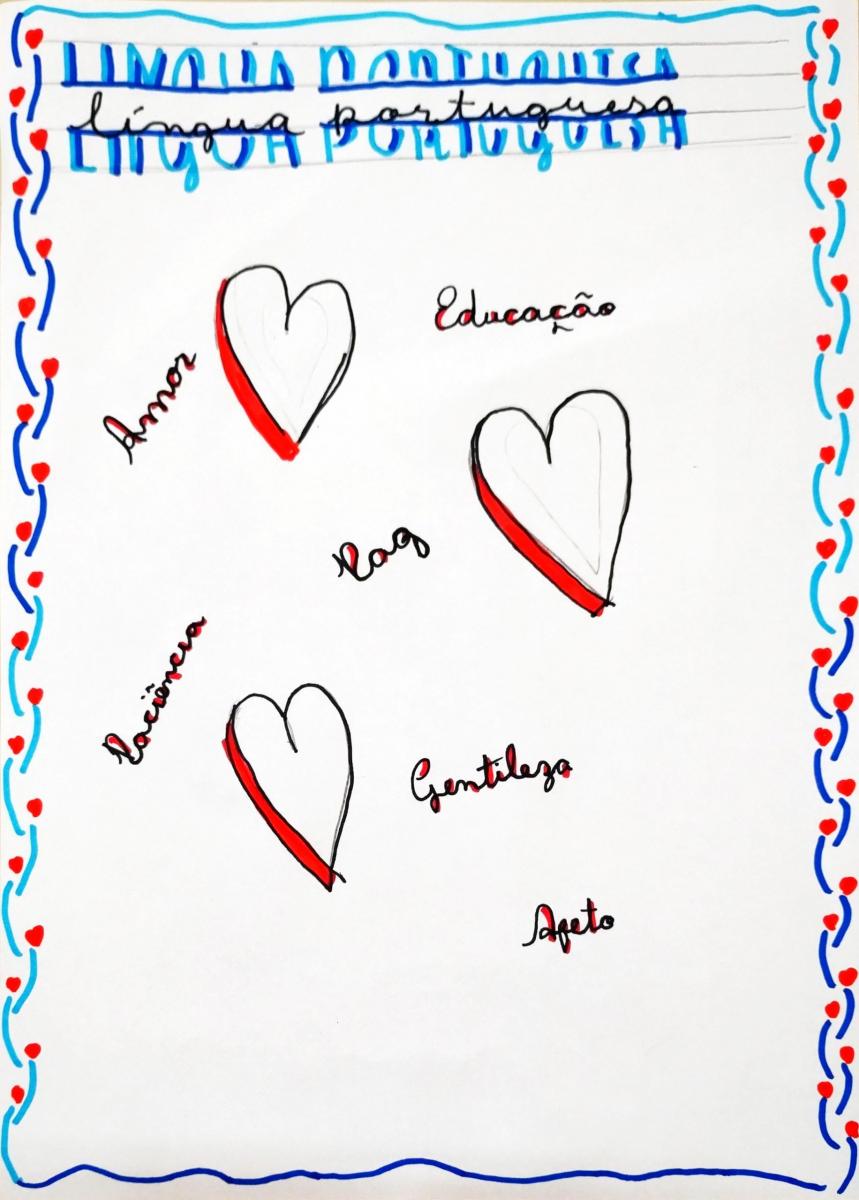 LINGUA PORTUGUESA
língua portuguesa
Educação
Amor
Paz
Paciência
Gentileza
Afeto